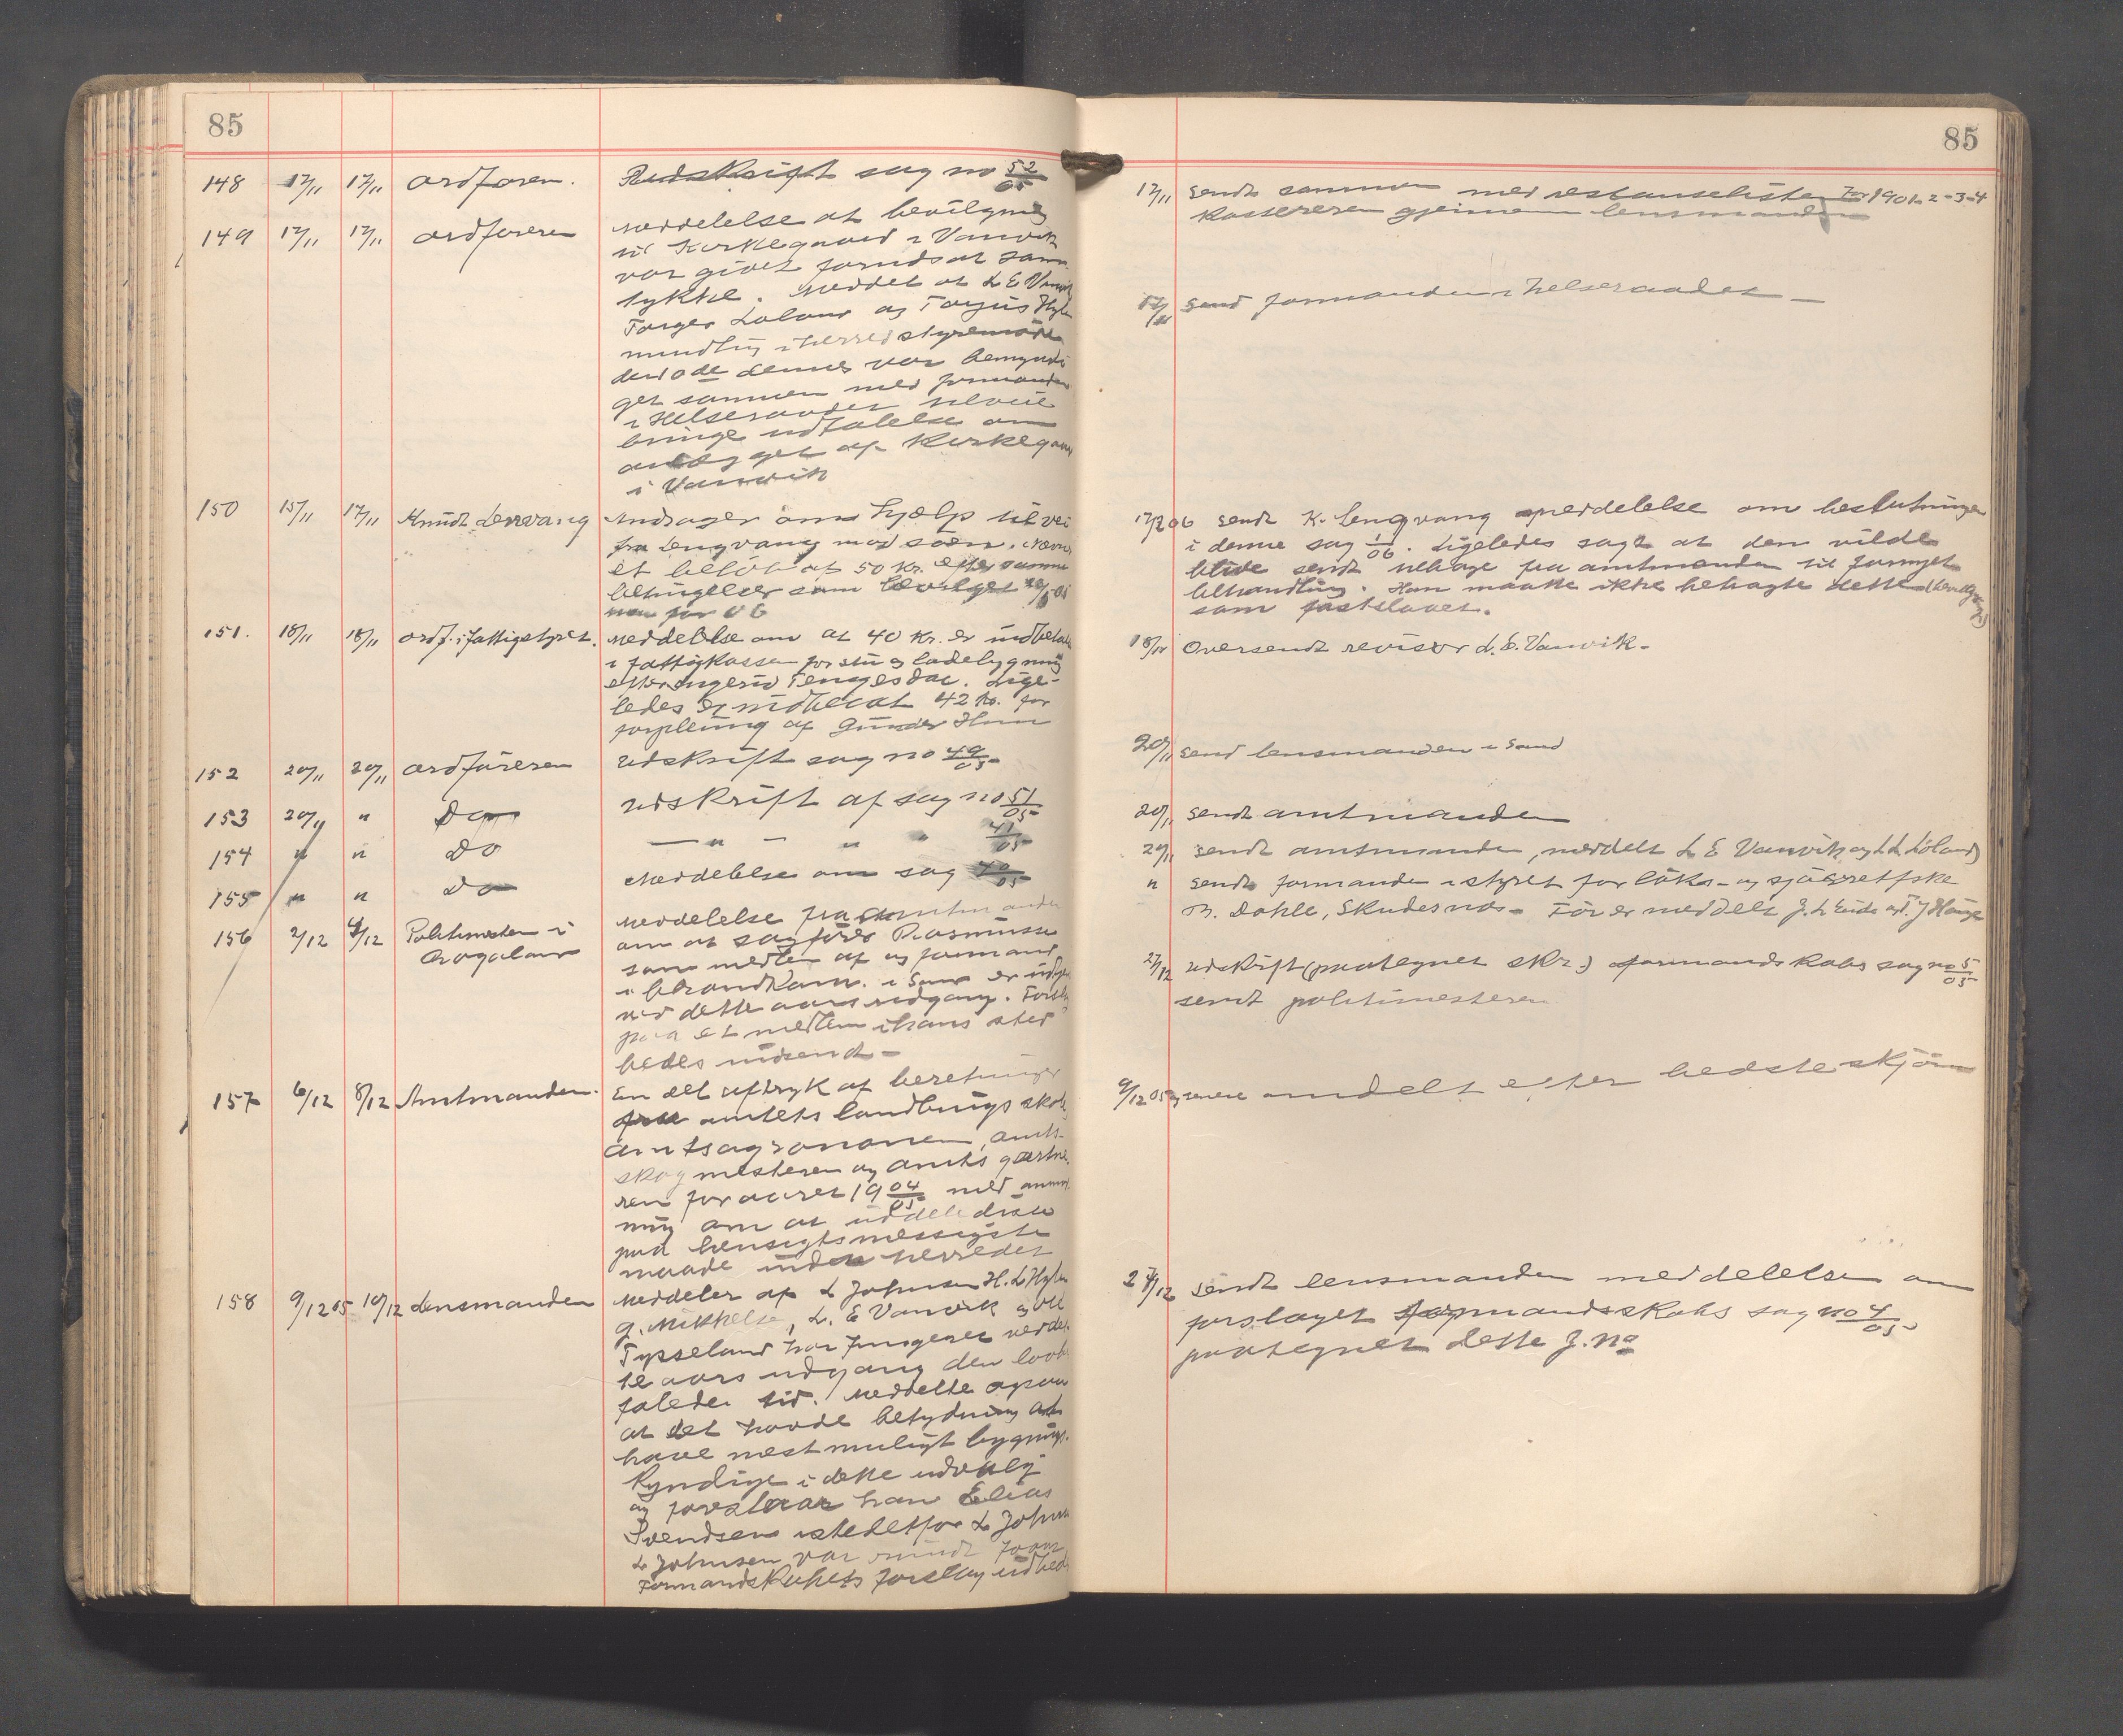 85
148 17/11 17/11 Ordføren. Udskrift sag no 52/05
149 17/11 17/11 Ordføreren Meddelelse at bevilgning
til Kirkegaard i Vanvik
var givet forudsat sam-
tykke. Meddelt at L E Vanvik
Torger Løland og Torgius Hylen
mundtlig i herredsstyremøde
den 10de dennes var bemyndi
get sammen med formanden
i Helseraadet til veie
bringe udtalelse om
anlægget af Kirkegaard
i Vanvik
150 15/11 17/11 Knudt Lengvang Andrager om hjælp til vei
fra Lengvang mod søen. Nævner
et beløb af 50 Kr. efter samme
betingelser som bevilget
for 06
151. 18/11 18/11 ordf. i fattigstyret. Meddelelse om at 40 Kr. er indbetalt
i fattigkassen for stu og ladebygning
efter Tengesdal. Lige-
ledes er indbetalt 42 kr. for
forpleining af Gunder
152 20/11 20/11 Ordføreren Udskrift sag no 49/05
153 20/11 " Do Udskrift af sag no 51/05
154 " " Do — " — " " 41/05
155 " " Do Meddelelse om sag 40/05
156 2/12 4/12 Politimesteren i
Rogaland
Meddelelse fra Amtmanden
om at sagfører Rasmussen
som medlem af og formand
i Brandkom. i Sand er udgaaet
ved dette aars udgang. Forslag
paa et medlem i hans sted
bedes indsendt —
157 6/12 8/12 Amtmanden. En del aftryk af beretninger
fra amtets landbrugsskole,
amtsagronomen, amts-
skogmesteren og amtsgartne-
ren for aaret 1904/05 med anmod
ning om at uddele disse
paa hensigtsmessigste
maade inden herredet
158 9/12 05 10/12 Lensmanden Meddeler at L Johnsen H. L Hylen
G. Mikkelsen, L. E Vanvik og
Tysseland har fungeret ved det
te aars udgang den lovbe
falede tid. Meddelte ogsaa
at det havde betydning at
have mest muligt bygnings
kyndige i dette udvalg
og foreslaar han Elias
Svendsen istedetfor L Johnsen
L Johnsen var
Formandskapets forslag udbedes
85
17/11 Sendt sammen med restanselisten for 1901-2-3-4
Kassereren gjennem lensmanden
17/11 Send formanden i helseraadet —
17/2 06 sendt K. Lengvang meddelelse om beslutningen
i denne sag 1/06. Ligeledes sagt at den vilde
blive sendt tilbage fra amtmanden til fornyet
behandling. Han maatte ikke betragte dette (bevilgningen)
som fastslaaet.
18/11 Oversendt revisor L. E. Vanvik.
20/11 Send lensmanden i Sand
20/11 Sendt amtmanden
20/11 Sendt amtmanden, meddelt L E Vanvik og L L Løland
" Sendt formanden i styret for laks- og sjøørretfiske
Dahle, Skudesnæs — Før er meddelt J. L Eide og T. J Hauge
27/12 Udskrift (paategnet skr.) formandskabs sag no 5/05
sendt politimesteren
9/12 05 og senere omdelt efter bedste skjøn
27/12 Sendt lensmanden meddelelse om
forslaget formandsskabs sag no 4/05
paategnet dette J. No